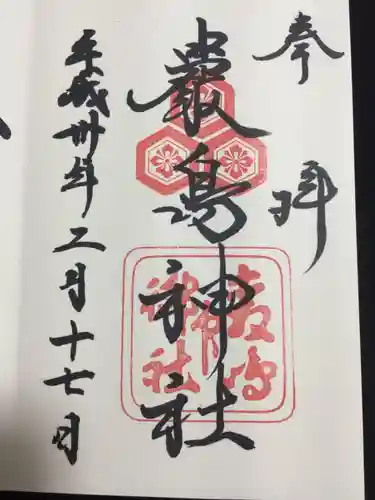 奉拝
嚴島神社
嚴島神社
平成卅年二月十七日